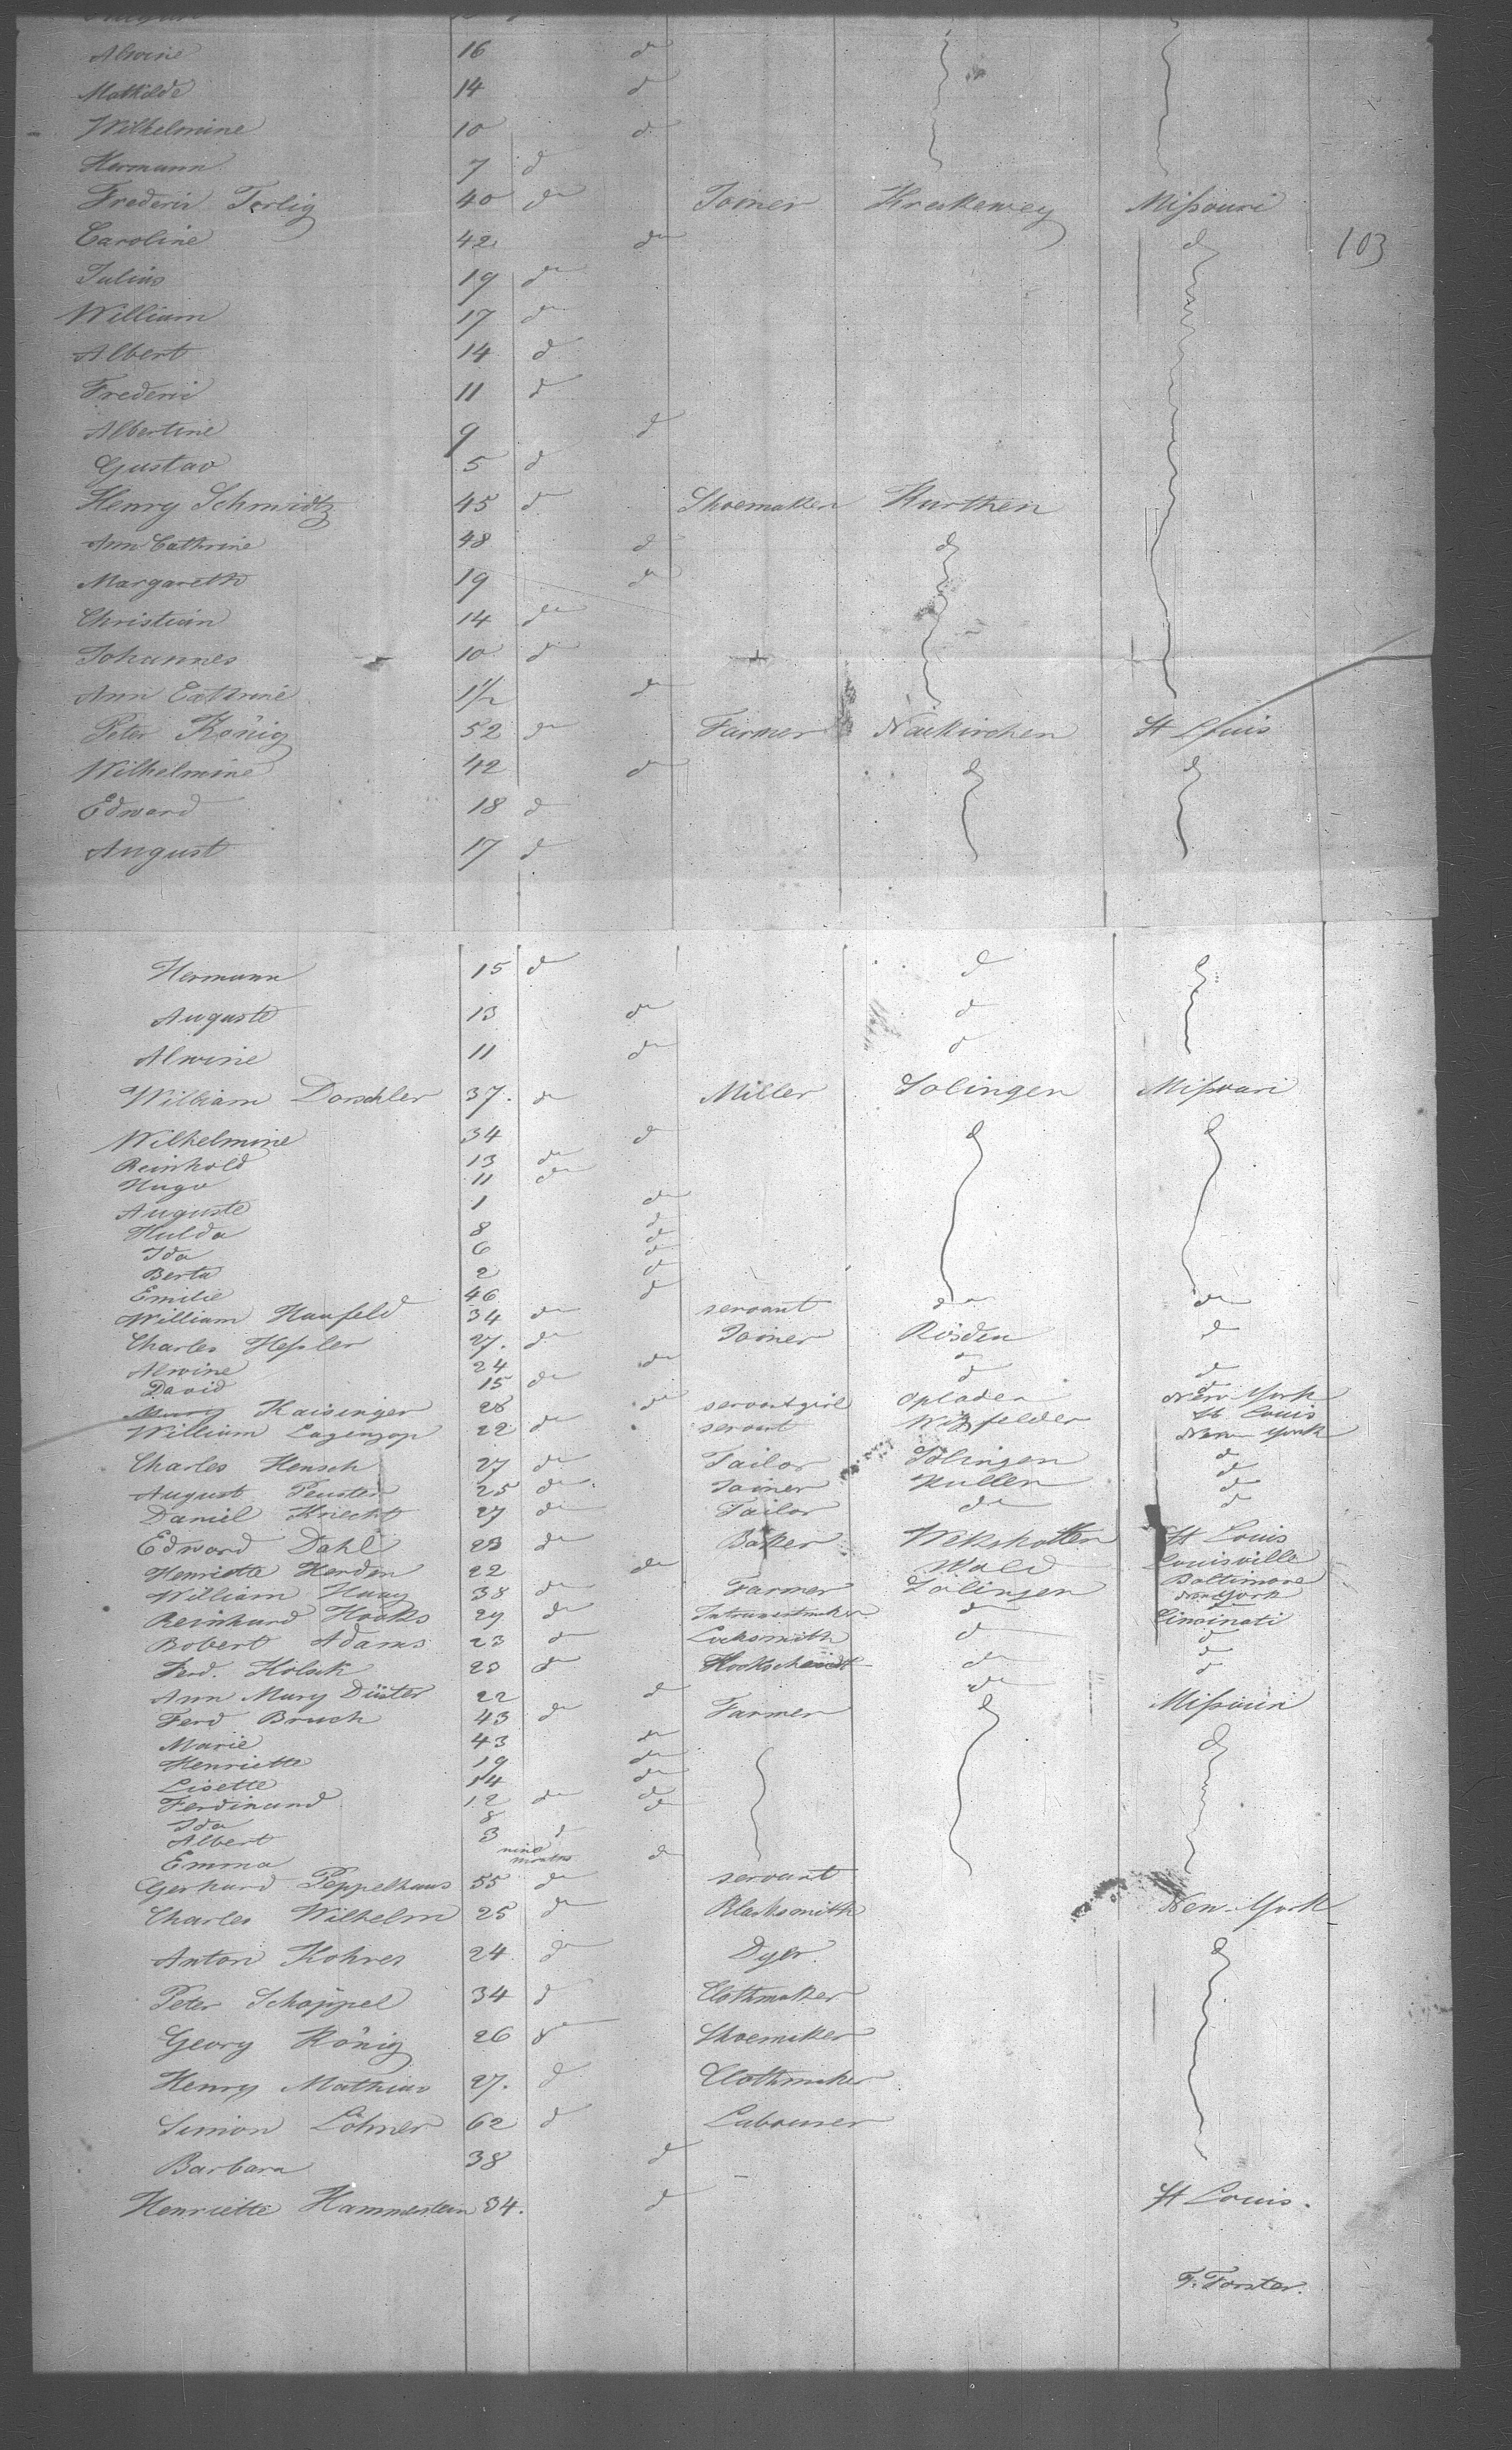 Alwine 16 d
Mathilde 14 d
Wilhelmine 10 d
Hermann 7 d
Frederic Terlig 40 do Joiner Kreskewey Missouri
Caroline 42 do d 103
Julius 19 do
William 17 do
Albert 14 d
Frederic 11 d
Albertine 9 d
Gustav 5 d
Henry Schmidtz 45 d Shoemaker Kurthen
Ann Cathrine 48 d d
Margareth 19 do
Christian 14 do
Johannes 10 d
Ann Cathrine 1 1/2 d
Peter König 52 do Farmer Neukirchen St Louis
Wilhelmine 42 d d d
Edward 18 d
August 17 d
Hermann 15 d d d
Auguste 13 do d
Alwine 11 do d
William Dorschler 37. do Miller Solingen Missouri
Wilhelmine 34 d d d
Reinhold 13 do
Hugo 11 do
Auguste 1 do
Hulda 8 d
Ida 6 d
Berta 2 d
Emilie 46 d
William Haufeld 34 do servant do do
Charles Hessler 27. do Joiner Rösden d
Alwine 24 do d d
David 15 do d d
Mary Kaisinger 28 do servantgirl Opladen New-York
William 22 do servant St Louis
New-York
Charles Hensch 27 do Tailor Solingen d
August 25 do Joiner Kullen d
Daniel Knecht 27 do Tailor do d
Edward Dahl 23 do Baker St Louis
Henriette Herden 22 do Wald Louisville
William Haag 38 do Farmer Solingen Baltimore
Reinhard Hooks 29 do d New York
Robert Adams 23 d Locksmith d Cincinati
Ferd. Kölsch 23 do do d
Ann Mary Düster 22 d do
Ferd Bruch 43 do Farmer d Missouri
Marie 43 do d
Henriette 19 do
Lisette 14 do
Ferdinand 12 do
Ida 8 do
Albert 3 d
Emma nine months d
Gerhard Peppelhaus 55 do servant
Charles Wilhelm 25 do Blacksmith New-York
Anton Kohres 24 do Dyer. d
Peter Schäppel 34 d Clothmaker
Georg König 26 do Shoemaker
Henry Mathias 27. d Clothmaker
Simon Löhner 62 d Labourer
Barbara 38 d
Henriette Hammerstein 34. d St Louis.
F. Forster.